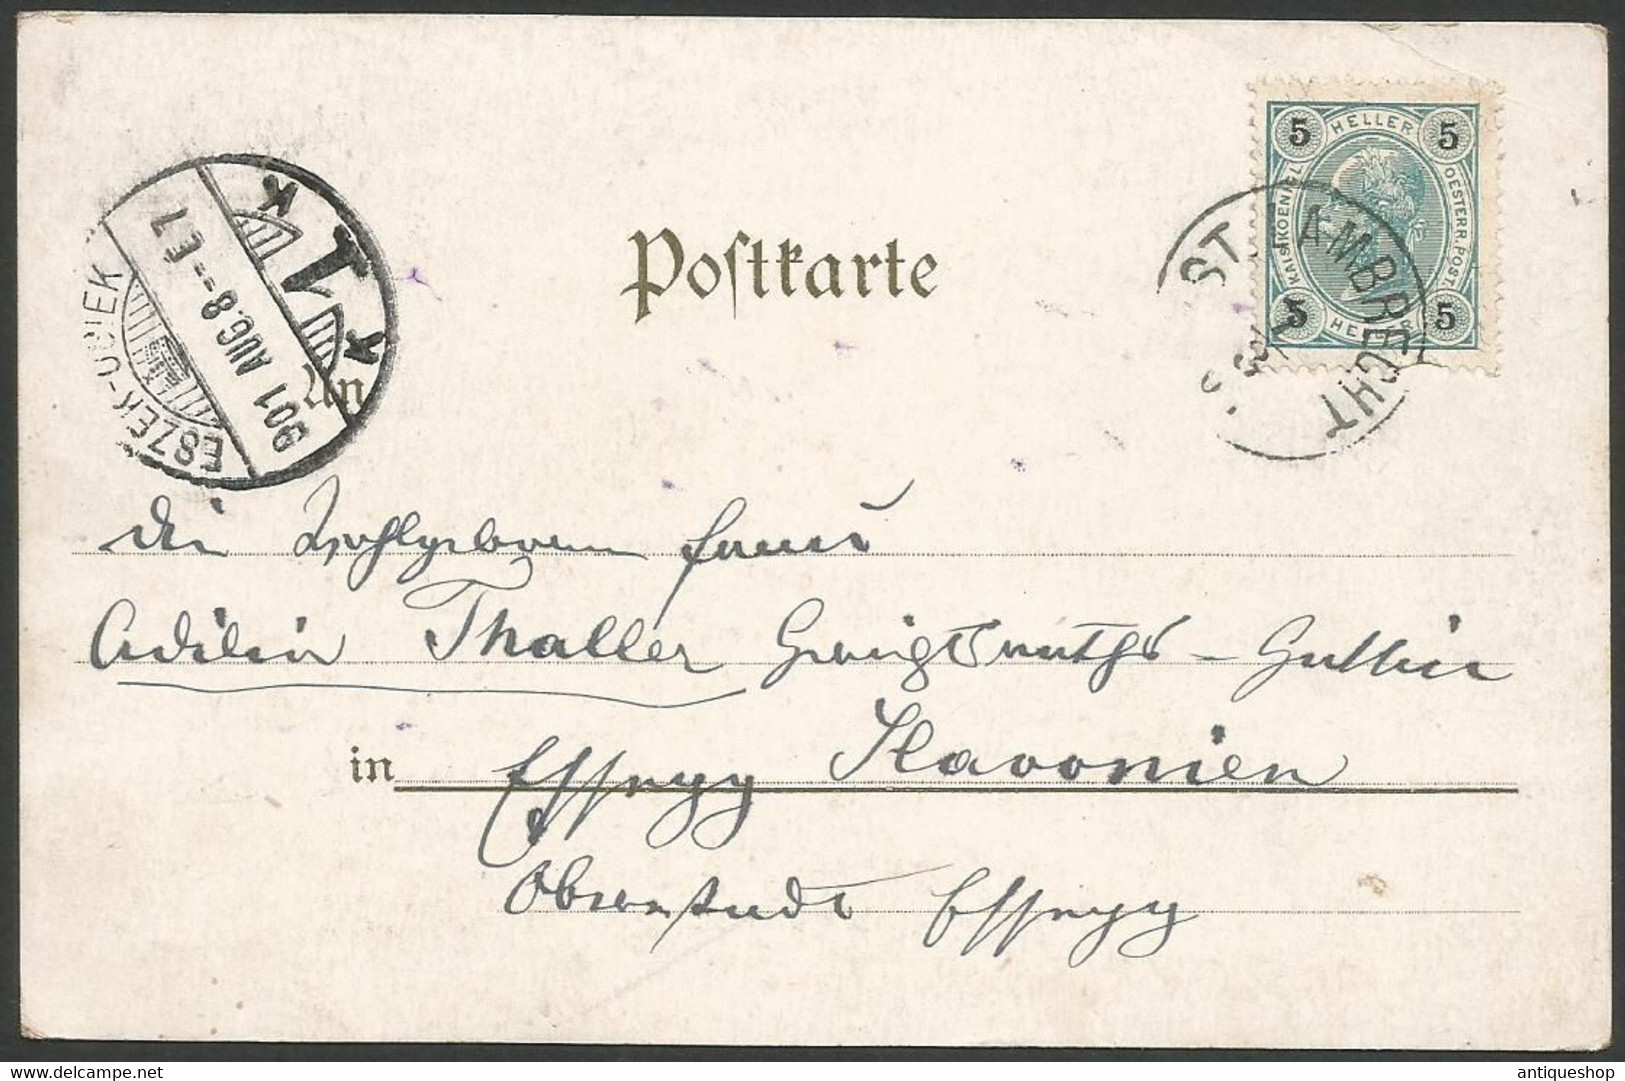 Postkarte
5 HELLER 5
KAIS. KOENIGL.
OESTERR. POST
5 HELLER 5
ST. LAMBRECHT
ESZEK-OSIEK
901 AUG. 8 -- E 7
An
Wohlgeboren Frau
Thaller Gerichtsraths-Gattin
in Essegg Slavonien
Oberstadt Essegg
delcampe.net
antiqueshop